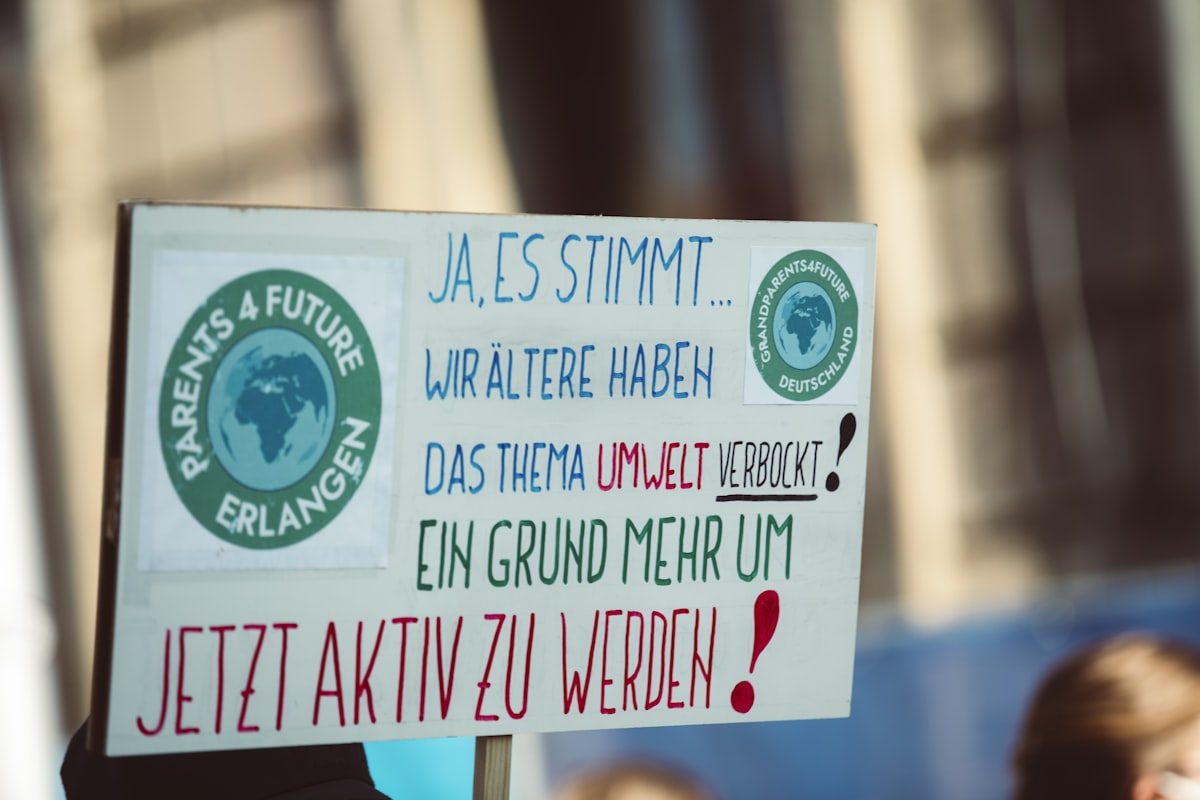 PARENTS 4 FUTURE
ERLANGEN
JA, ES STIMMT...
WIR ÄLTERE HABEN
DAS THEMA UMWELT VERBOCKT!
EIN GRUND MEHR UM
JETZT AKTIV ZU WERDEN!
GRANDPARENTS4FUTURE
DEUTSCHLAND